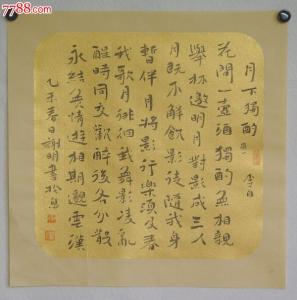 月下獨酌 李白
花間一壺酒獨酌無相親
舉杯邀明月對影成三人
月既不解飲影徒隨我身
暫伴月將影行樂須及春
我歌月徘徊我舞影凌亂
醒時同交歡醉後各分散
永結無情遊相期邈雲漢
乙未春日謝明書於